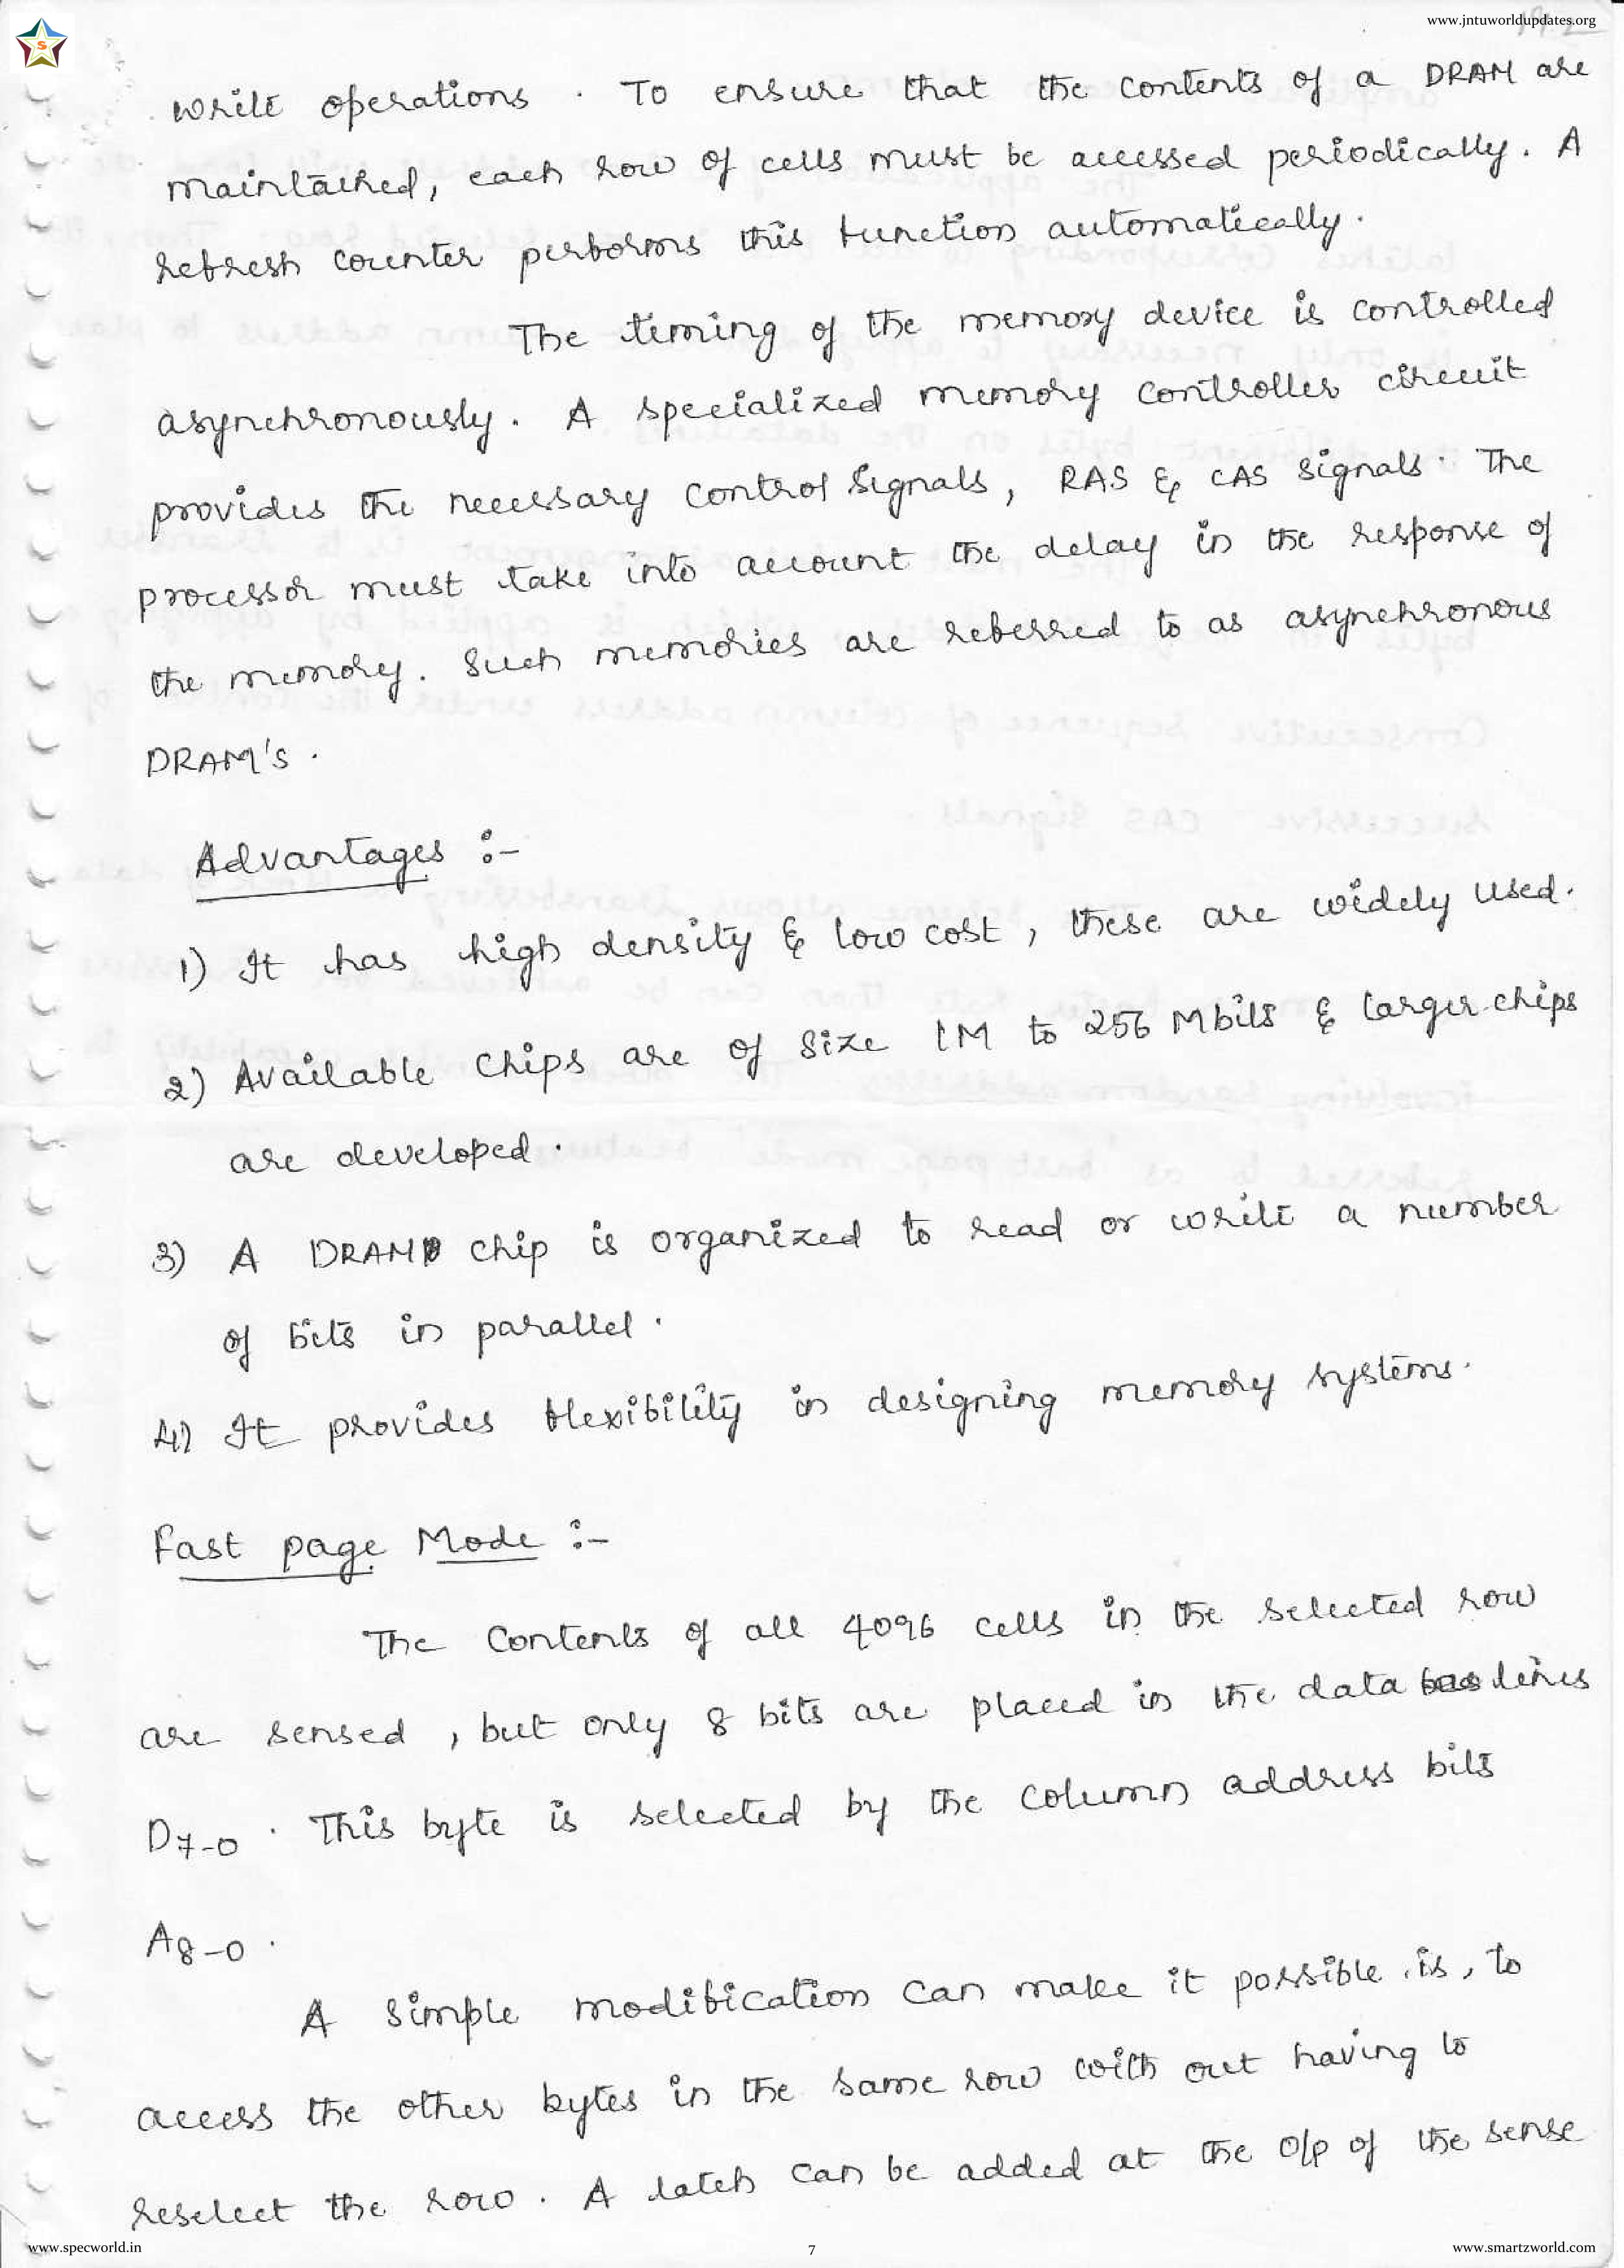 www.jntuworldupdates.org
S
write operations . To ensure that the contents of a DRAM are
maintained, each row of cells must be accessed periodically. A
refresh counter performs this function automatically.
The timing of the memory device is controlled
asynchronously. A specialized memory controller circuit
provides the necessary control signals, RAS & CAS signals. The
processor must take into account the delay in the response of
the memory. Such memories are referred to as asynchronous
DRAM's .
Advantages :-
1) It has high density & low cost, these are widely used.
2) Available chips are of size 1M to 256 Mbits & larger chips
are developed.
3) A DRAM chip is organized to read or write a number
of bits in parallel.
4) It provides flexibility in designing memory systems.
Fast page Mode :-
The contents of all 4096 cells in the selected row
are sensed , but only 8 bits are placed in the data lines
D7-0 . This byte is selected by the column address bits
A8-0 .
A simple modification can make it possible is, to
access the other bytes in the same row with out having to
reselect the row. A latch can be added at the o/p of the sense
www.specworld.in
7
www.smartzworld.com